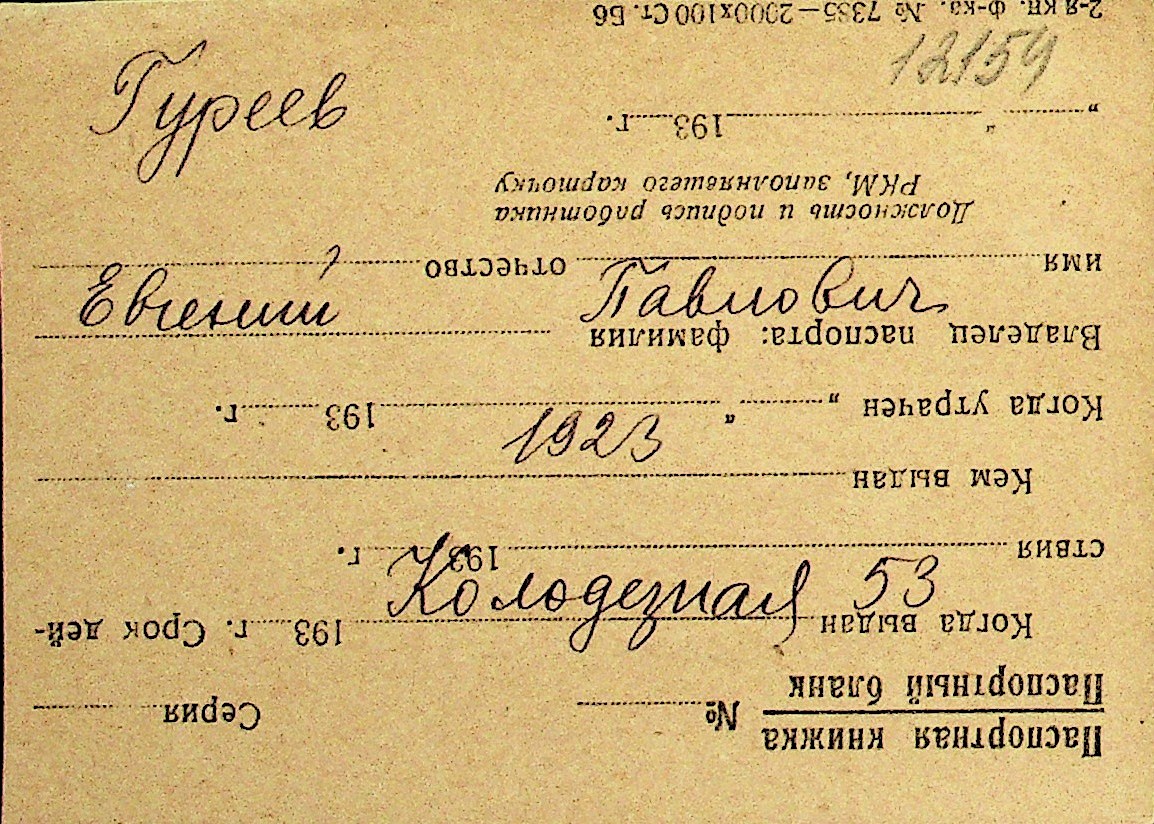 Гуреев
12159
Евгений Павлович
1923
Колодезная 53
Паспортная книжка
Паспортный бланк № Серия
Когда выдан 193 г. Срок дей-
ствия 193 г.
Кем выдан
Когда утрачен „ “ 193 г.
Владелец паспорта: фамилия
имя отчество
Должность и подпись работника
РКМ, заполнявшего карточку
„ “ 193 г.
2-я кн. ф-ка. № 7385—2000х100 Ст. Б6